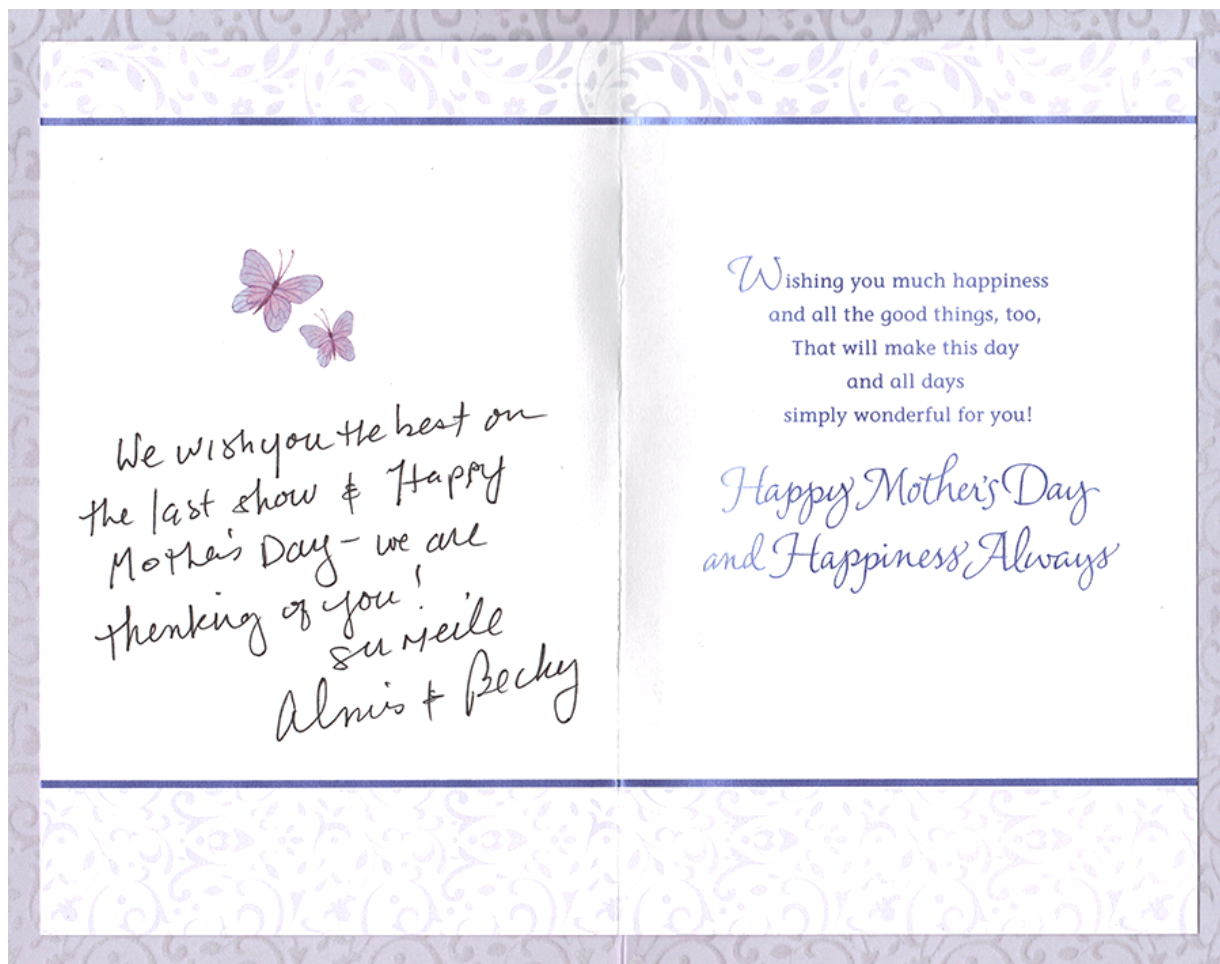 We wish you the best on
the last show & Happy
Mother's Day - we are
thenking of you!
su meile
Almis & Becky
Wishing you much happiness
and all the good things, too,
That will make this day
and all days
simply wonderful for you!
Happy Mother's Day
and Happiness Always